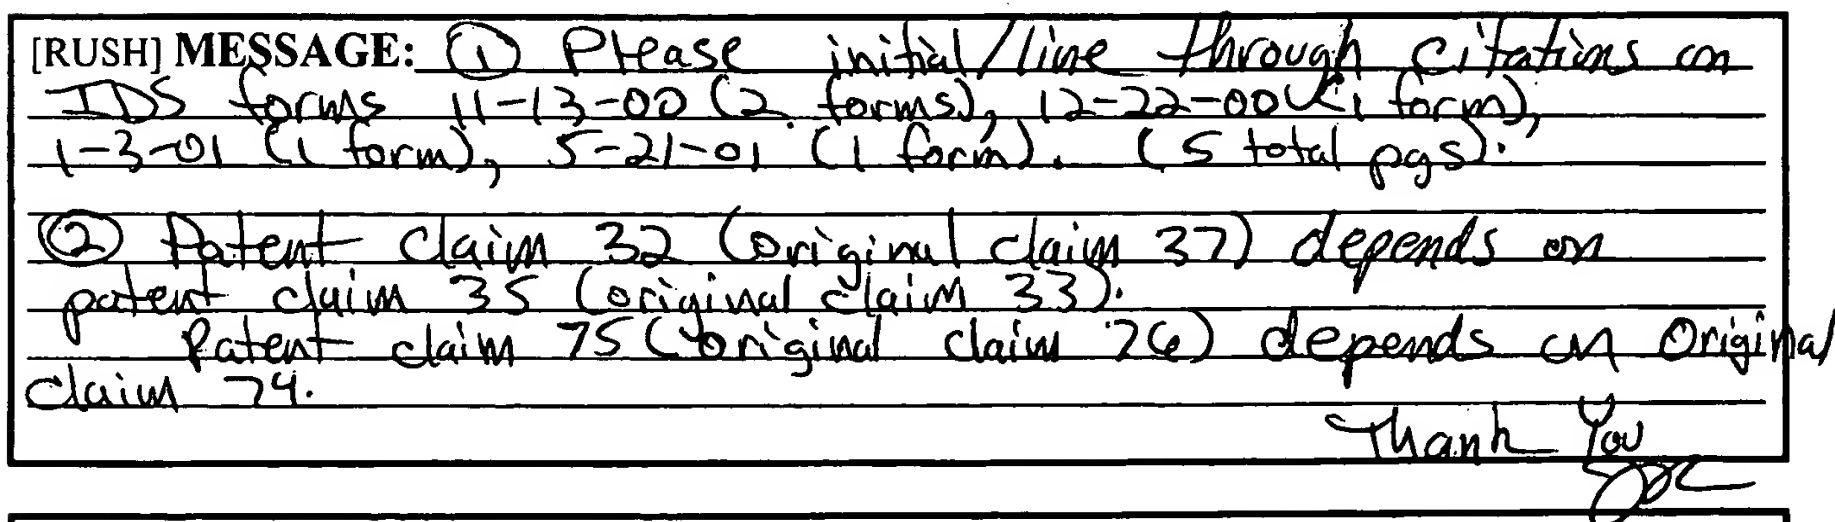 [RUSH] MESSAGE: ① Please initial/line through citations on
IDS forms 11-13-00 (2 forms), 12-22-00 (1 form),
1-3-01 (1 form), 5-21-01 (1 form). (5 total pgs).
② Patent claim 32 (original claim 37) depends on
patent claim 35 (original claim 33).
Patent claim 75 (original claim 76) depends on original
claim 74.
Thank You